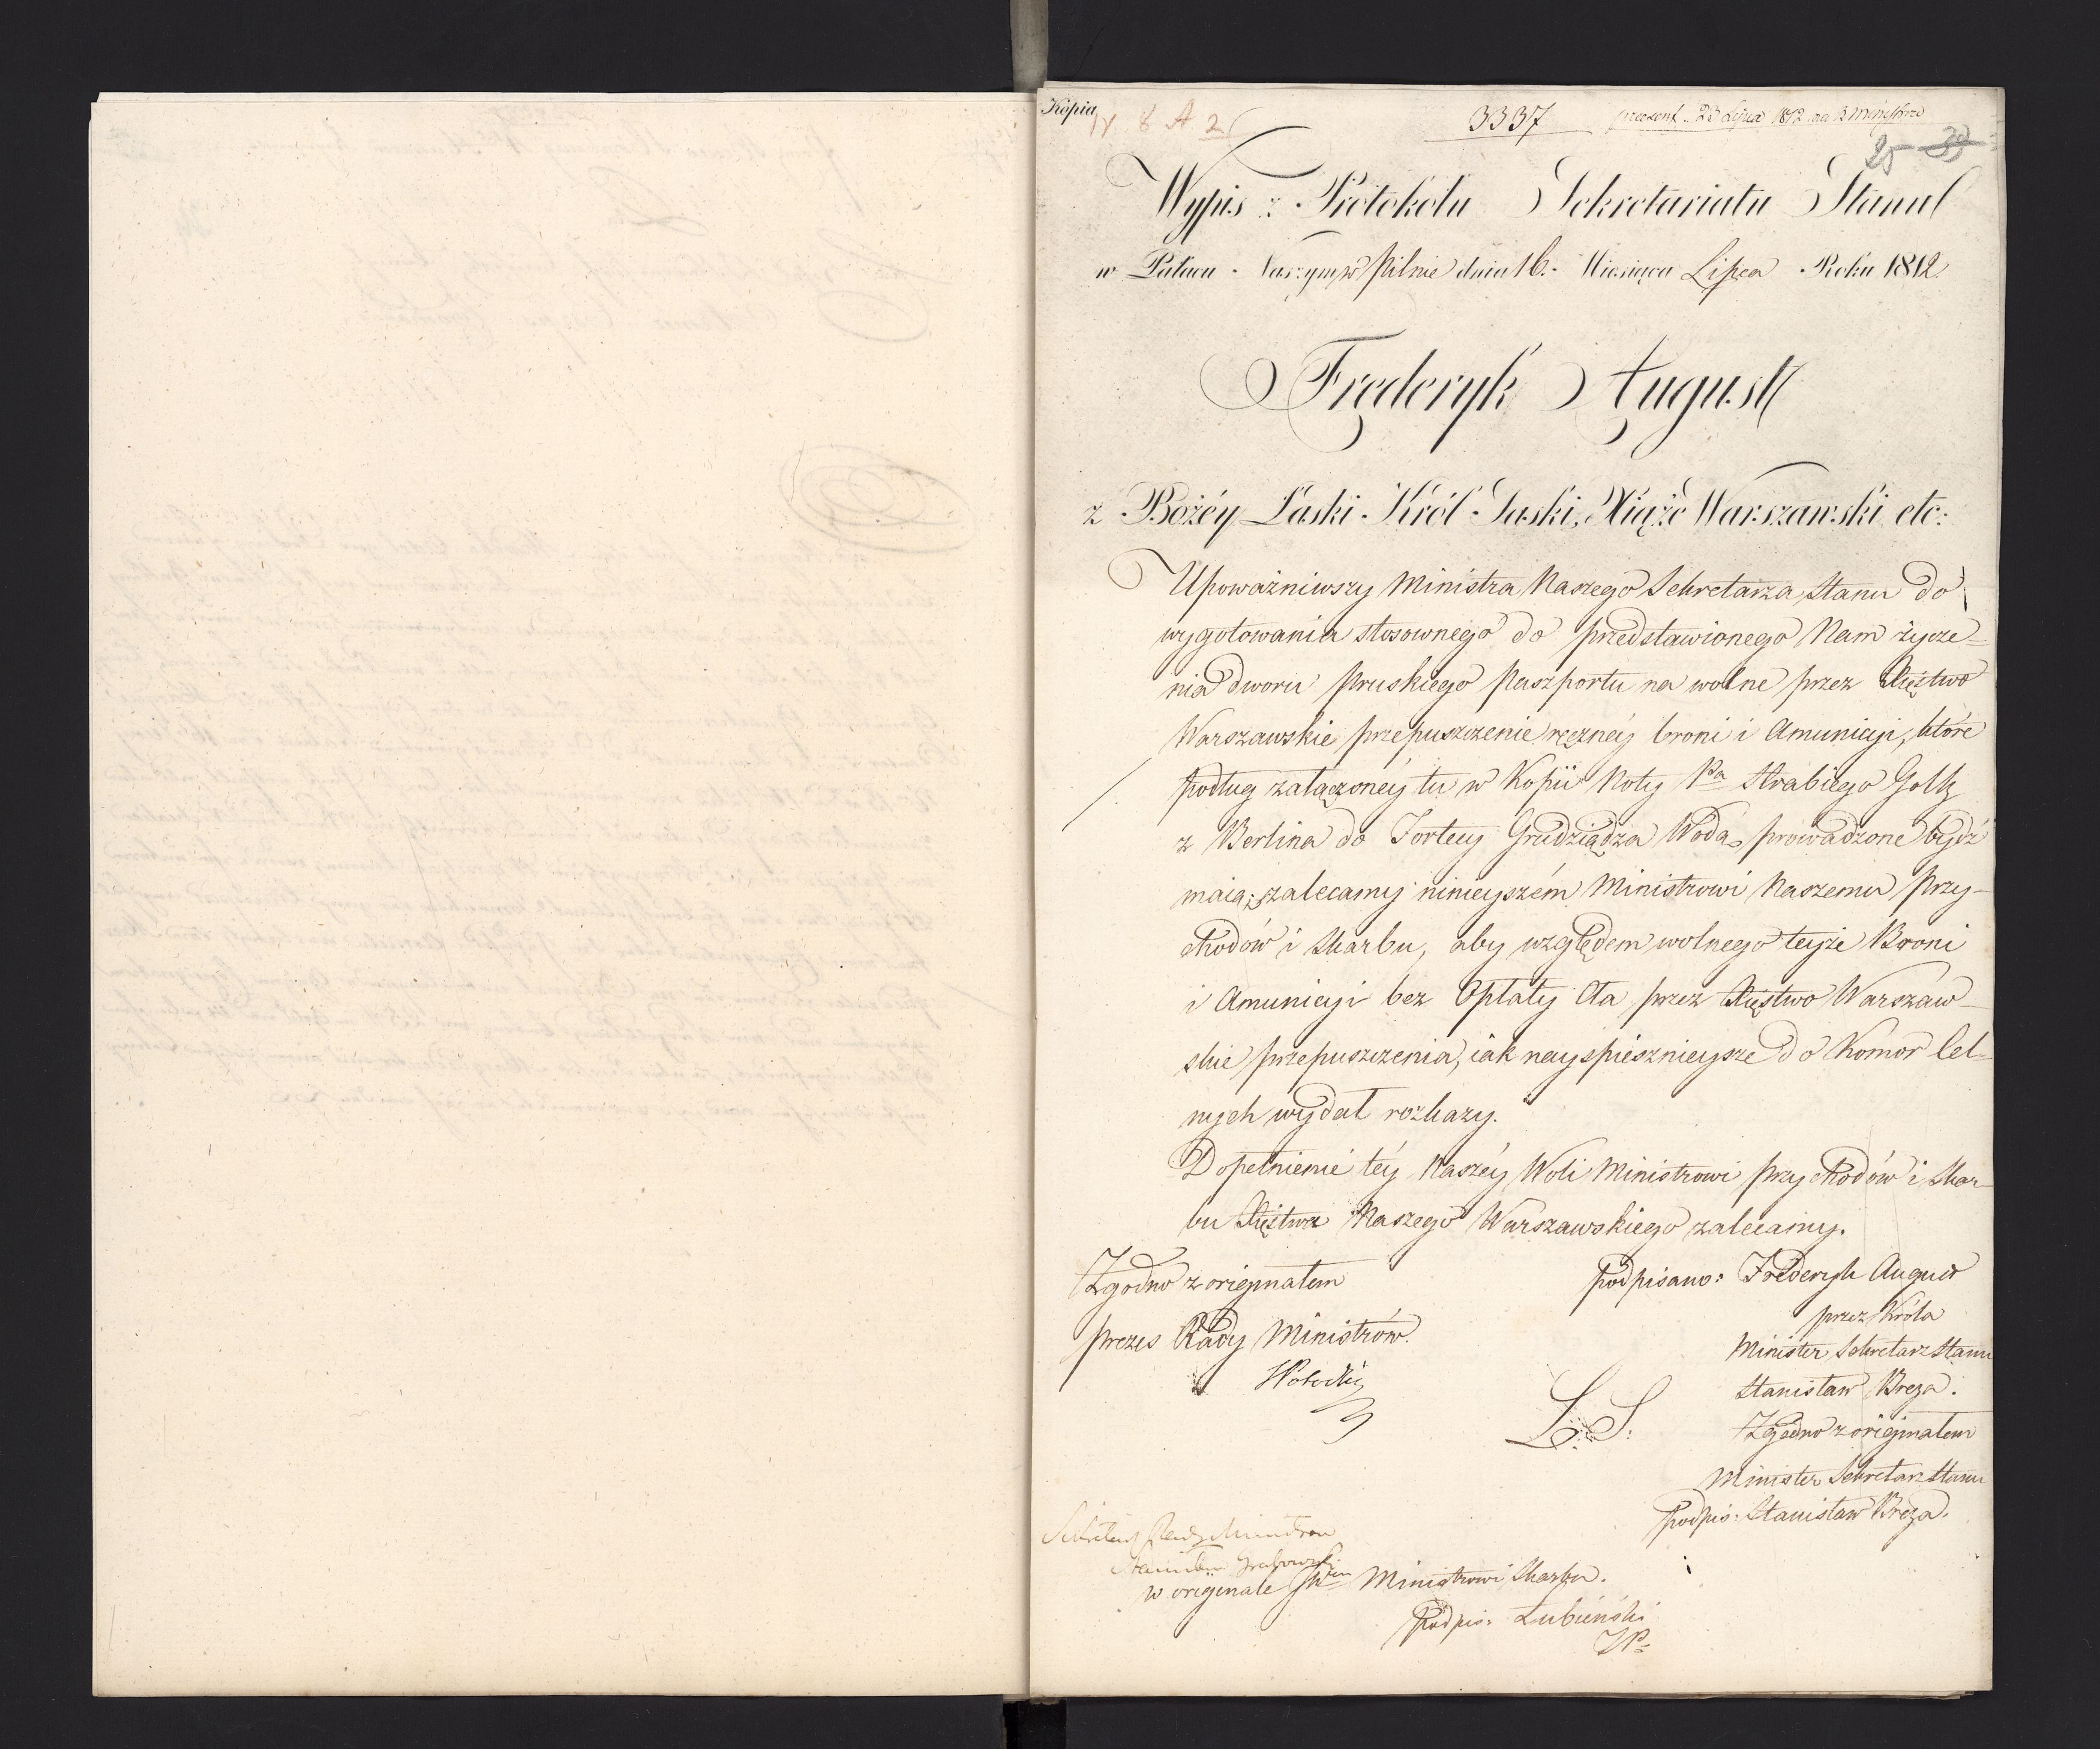 Kopia
3337
praesent. 23 Lipca 1812 na R Ministrów
25 39
Wypis z Protokołu Sekretariatu Stanu
w Pałacu Naszym w Pilnie dnia 16. Miesiąca Lipca Roku 1812.
Fryderyk August
z Bożéy Łaski Król Saski, Xiążę Warszawski etc:
Upoważniwszy Ministra Naszego Sekretarza Stanu do
wygotowania stosownego do przedstawionego Nam życze-
nia dworu Pruskiego Paszportu na wolne przez Xięstwo
Warszawskie przepuszczenie ręcznéy broni i Amunicyi, które
podług załączonéy tu w Kopii Noty Pa Hrabiego Goltz
z Berlina do Fortecy Grudziądza Wodą prowadzone bydź
maią; zalecamy ninieyszém Ministrowi Naszemu Przy-
chodów i Skarbu, aby względem wolnego teyże Broni
i Amunicyi bez Opłaty Cła przez Xięstwo Warszaw-
skie przepuszczenia, iak nayspiesznieysze do Komor Cel-
nych wydał rozkazy.
Dopełnienie téy Naszéy Woli Ministrowi Przychodów i Skar-
bu Xięstwa Naszego Warszawskiego zalecamy.
Zgodno z oryginałem
Prezes Rady Ministrów.
Potocki
podpisano: Fryderyk August
przez Króla
Minister Sekretarz Stanu
Stanisław Breza.
L. S.
Zgodno z oryginałem
Minister Sekretarz Stanu
podpis: Stanisław Breza.
Sekretarz Rady Ministrow
Stanisław Grabowski
w originale Ministrowi Skarbu.
podpis: Łubieński